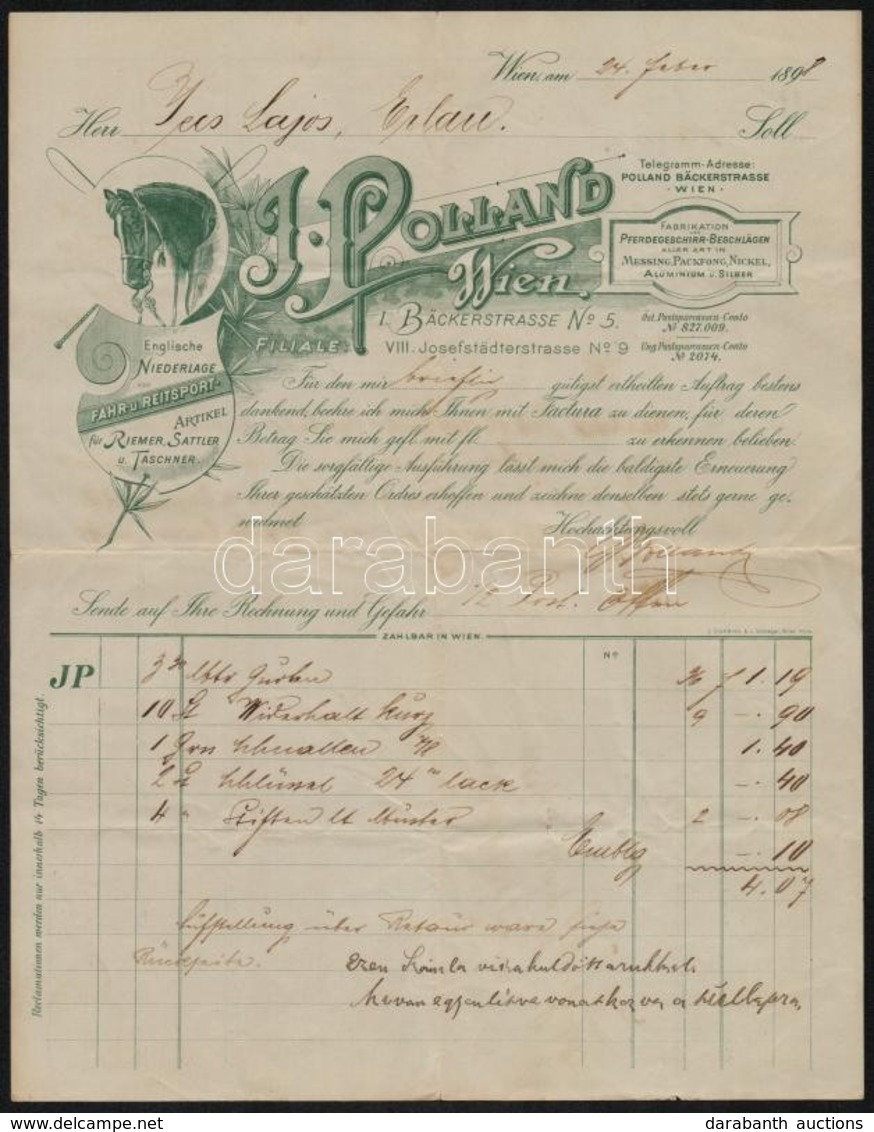 Wien, am 24. Feber 1898
Herr Lajos, Erlau. Soll
J. POLLAND
Wien.
Telegramm-Adresse:
POLLAND BÄCKERSTRASSE
· WIEN ·
FABRIKATION
VON
PFERDEGESCHIRR-BESCHLÄGEN
ALLER ART IN
MESSING, PACKFONG, NICKEL,
ALUMINIUM U. SILBER
I. BÄCKERSTRASSE No 5.
FILIALE: VIII. Josefstädterstrasse No 9
Öst. Postsparcassen-Conto
No 827.009.
Ung. Postsparcassen-Conto
No 2074.
Englische
NIEDERLAGE
VON
FAHR- U. REITSPORT-
ARTIKEL
für RIEMER, SATTLER
U. TASCHNER.
Für den mir brieflich gütigst ertheilten Auftrag bestens
dankend, beehre ich mich Ihnen mit Factura zu dienen, für deren
Betrag Sie mich gefl. mit fl. zu erkennen belieben.
Die sorgfältige Ausführung lässt mich die baldigste Erneuerung
Ihrer geschätzten Ordres erhoffen und zeichne denselben stets gerne ge-
widmet Hochachtungsvoll
darabanth
Polland
Sende auf Ihre Rechnung und Gefahr Post.
ZAHLBAR IN WIEN.
JP
No
3 Gurten 1.19
10 St Widerhalt kurz 9 -.90
1 Grn Schnallen 1.40
2 St Schlüssel 24 lack -.40
4 " Stiften lt Muster 2 -.08
Emblg -.10
4.07
Aufstellung über Retour ware siehe
Rückseite.
ezen számla
Reclamationen werden nur innerhalb 14 Tagen berücksichtigt.
darabanth auctions
www.darabanth.com